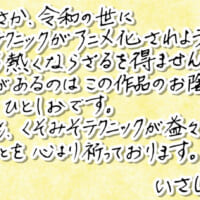 さか、令和の世に
テクニックがアニメ化されよう
ら熱くならざるを得ません
があるのはこの作品のお陰
ひとしおです。
、くそみそテクニックが益々
とを心より祈っております。
いさし